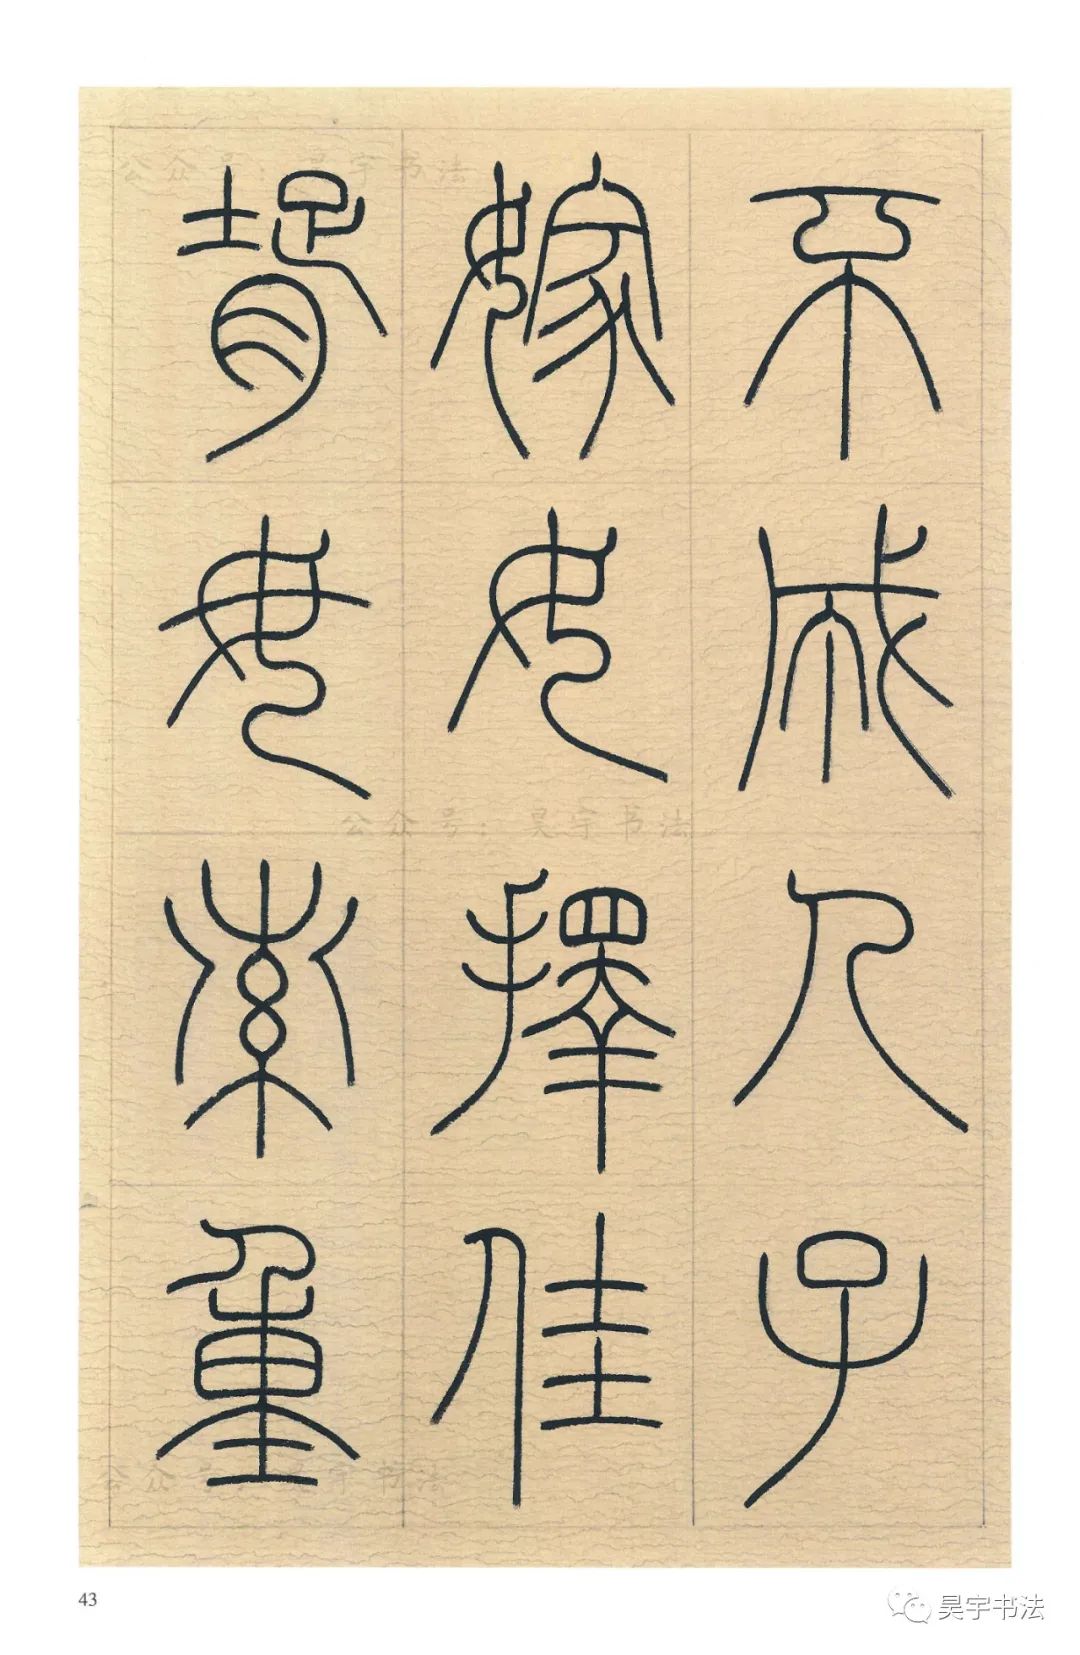 不成人子
嫁女擇佳
壻毋索重
公众号：昊宇书法
公众号：昊宇书法
公众号：昊宇书法
43
昊宇书法